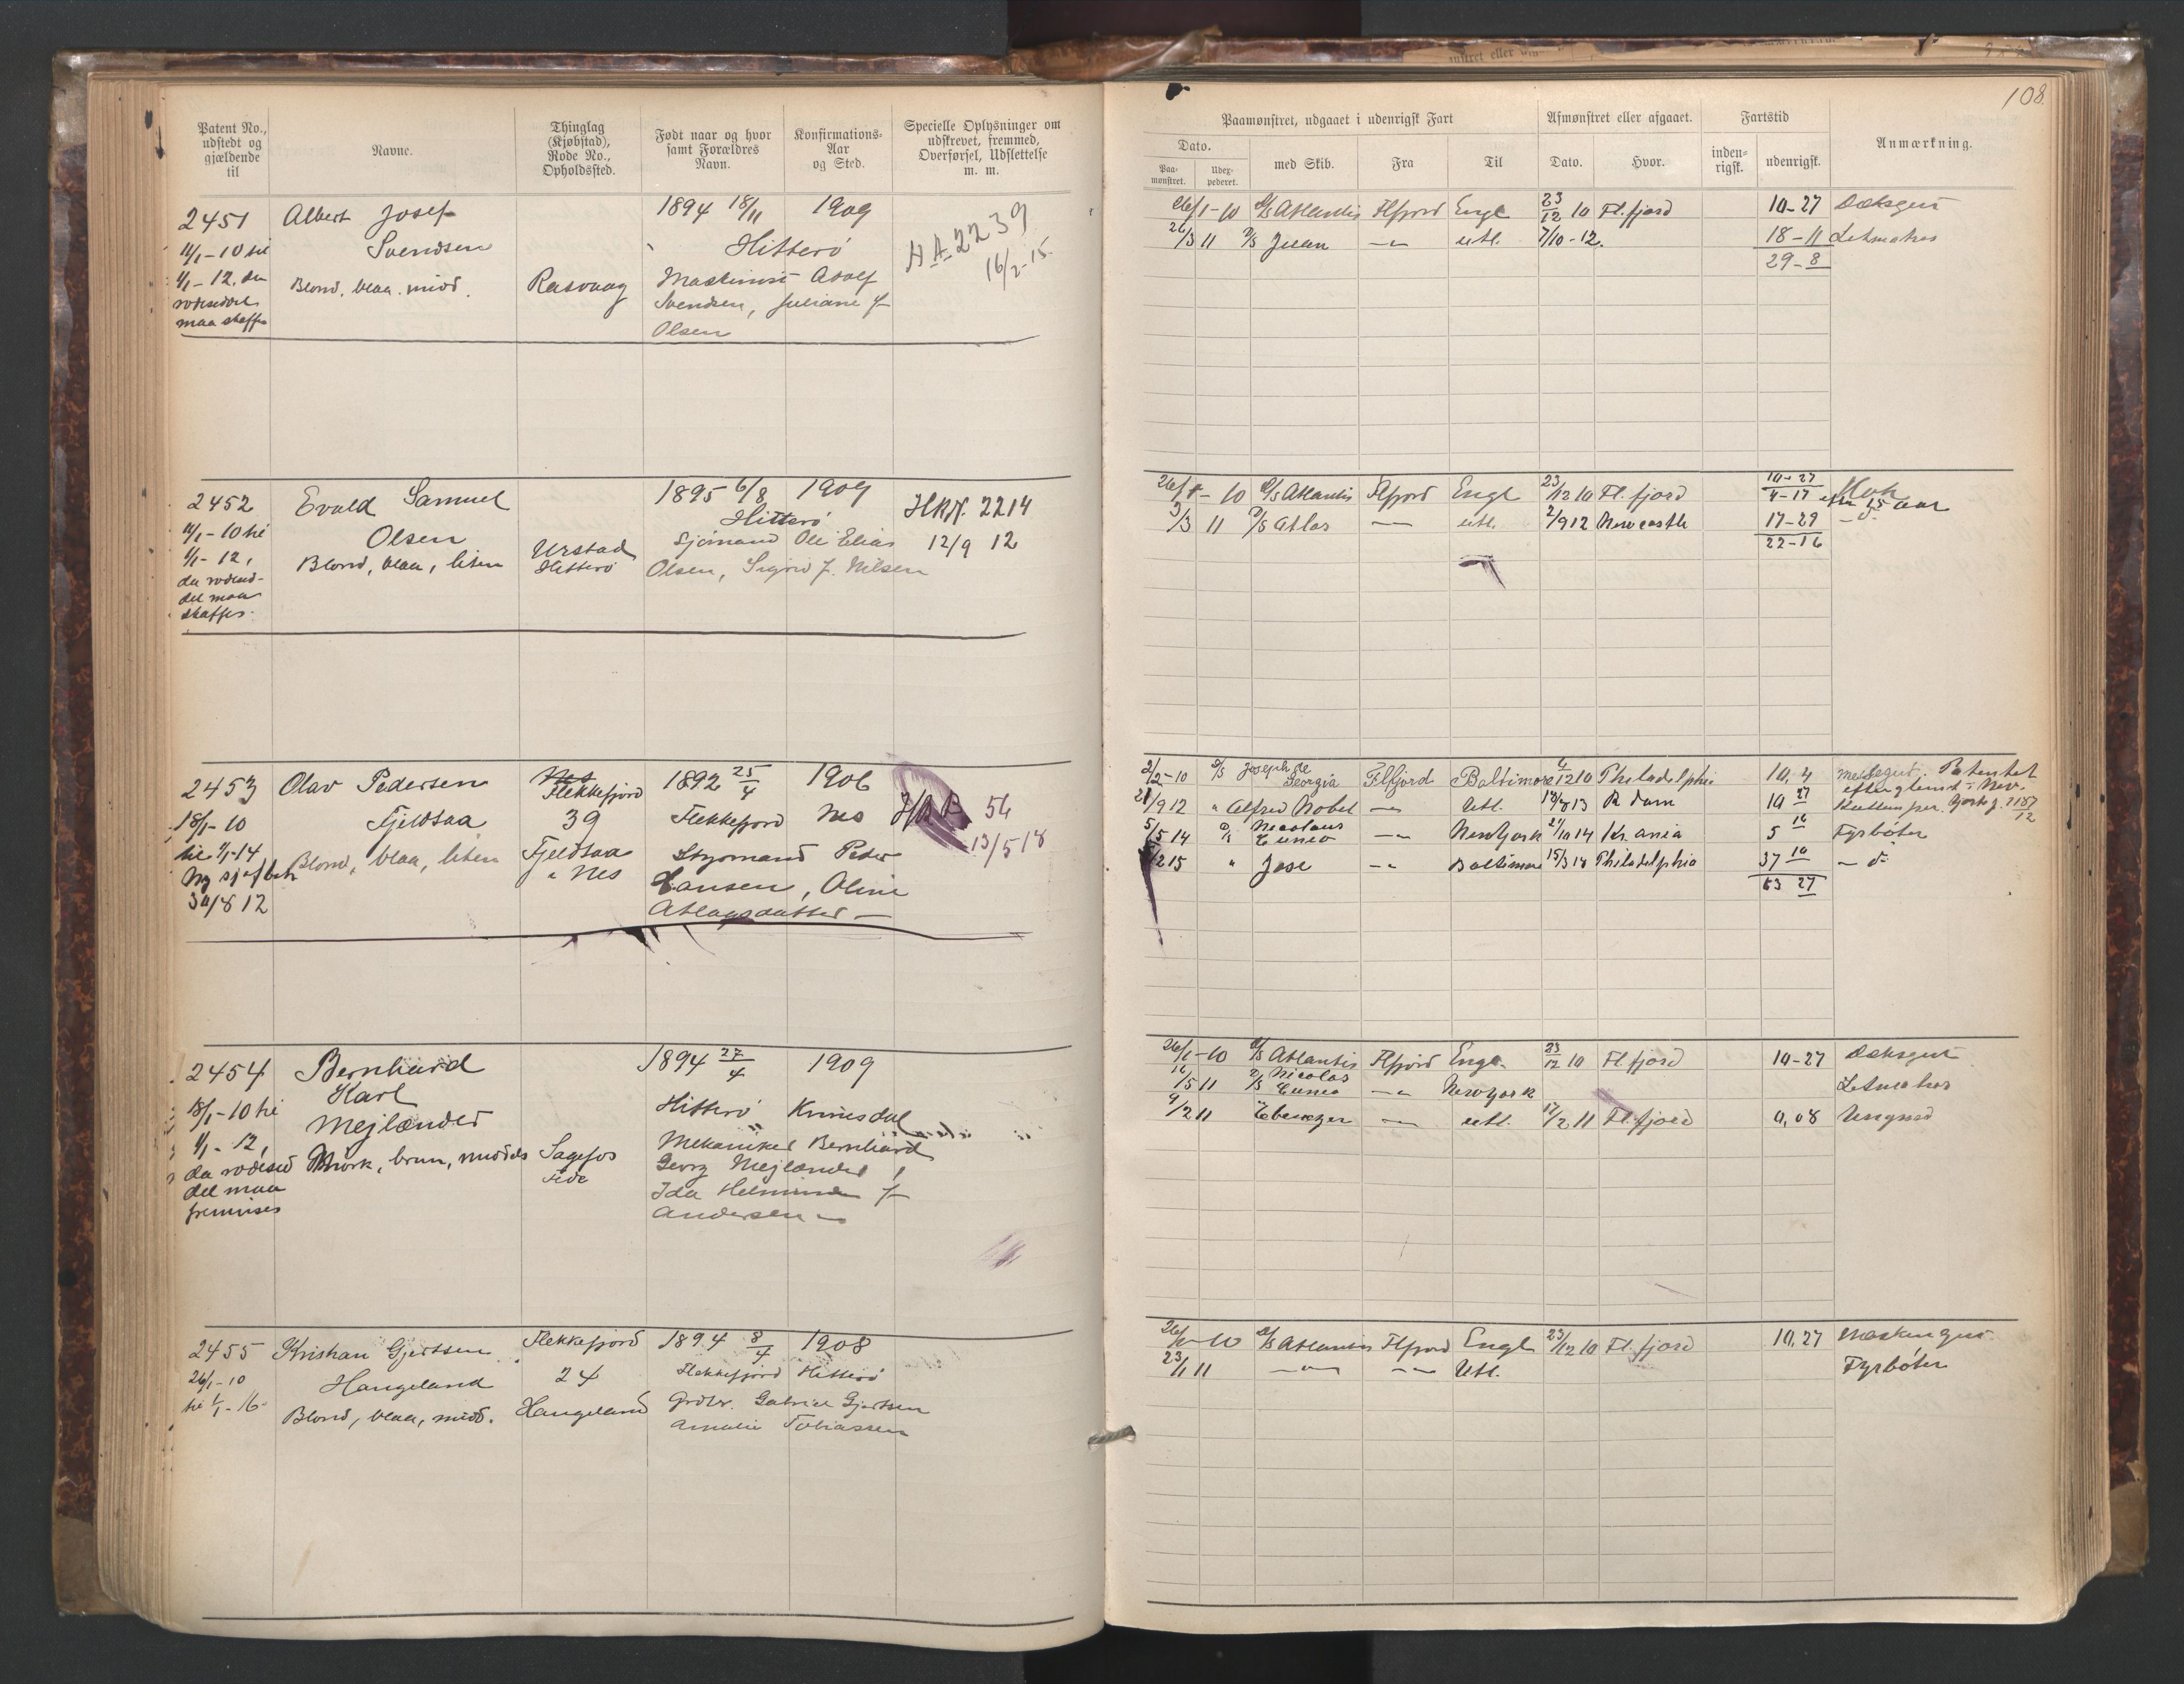 108.
Patent No., udstedt og gjældende til
Navne.
Thinglag (Kjøbstad), Rode No., Opholdssted.
Født naar og hvor samt Forældres Navn.
Konfirmations-Aar og Sted.
Specielle Oplysninger om udskrevet, fremmed, Overførsel, Udslettelse m. m.
Paamønstret, udgaaet i udenrigsk Fart
Dato.
Paamønstret.
Udexpederet.
med Skib.
Fra
Til
Afmønstret eller afgaaet.
Dato.
Hvor.
Fartstid
indenrigsk.
udenrigsk.
Anmærkning.
2451 Albert Josef 1894 18/11 1909
Svendsen Hitterø HA 2239
11/1-10 til 16/2-15
1/1-12, da Blond, blaa, midd. Rasvaag Maskinist Adolf
Svendsen, Juliane f.
maa skaffes
Olsen
26/1-10 D/S Atlantis Flfjord Engl 23/12 10 Fl.fjord 10-27 Dæksgut
26/3 11 D/S Juan -"- utl. 7/10-12. 18-11 Letmatros
29-8
2452 Evald Samuel 1895 6/8 1909
Olsen Hitterø 2214
11/1-10 til Sjømand Ole Elias 12/9 12
1/1-12, Blond, blaa, liten Urstad Hitterø Olsen, Sigrid f. Nilsen
del maa
skaffes.
26/1-10 D/S Atlantis Flfjord Engl 23/12 10 Fl.fjord 10-27 Kok
4-17 15 aar
3/3 11 D/S Atlas -"- utl. 2/9 12 Newcastle 17-29 - d-
22-16
2453 Olav Pedersen Nes Flekkefjord 1892 25/4 1906
18/1-10 Fjeldsaa 39 Flekkefjord Nes 54
til 1/1-14 Blond, blaa, liten Fjeldsaa Styrmand Peder 13/5 18
Ny
30/8 12 Nes Hansen, Oline
Atlagsdatter
2/2-10 D/S Joseph de Georgia Flfjord Baltimore 6/12 10 Philadelphia 10,4 Patentet
21/9 12 " Alfred Nobel -"- Utl. 13 R.dam 10 27
5/5 14 D/S Nicolaus Cuneo -"- New York 21/10 14 Kr.ania 5 16 Fyrbøter
2 15 " Jose -"- Baltimore 15/3 18 Philadelphia 37 10 - d-
63 27
2454 Bernhard 1894 27/4 1909
Karl
18/1-10 til Mejlænder Hitterø Kvinesdal
1/1-12, Mekaniker Bernhard
Mørk, brun, middels Sagefos Georg Mejlænder,
del maa Fede Ida Helminda f.
fremvises Andersen
26/1-10 D/S Atlantis Flfjord Engl. 23/12 10 Fl.fjord 10-27 Dæksgut
16/5 11 D/S Nicolas Cuneo -"- New York Letmatros
9/2 11 Ebenezer -"- utl. 17/2 11 Fl.fjord 0,08 Ungmd
2455 Kristian Gjertsen Flekkefjord 1894 8/4 1908
26/1-10 Hangeland 24 Flekkefjord Hitterø
til 1/1-16 Blond, blaa, midd. Hangeland Grdbr. Gabriel Gjertsen
Amalie Tobiassen
26/1-10 D/S Atlantis Flfjord Engl 23/12 10 Fl.fjord 10,27 Maskingut
23/1 11 -"- -"- Utl. Fyrbøter